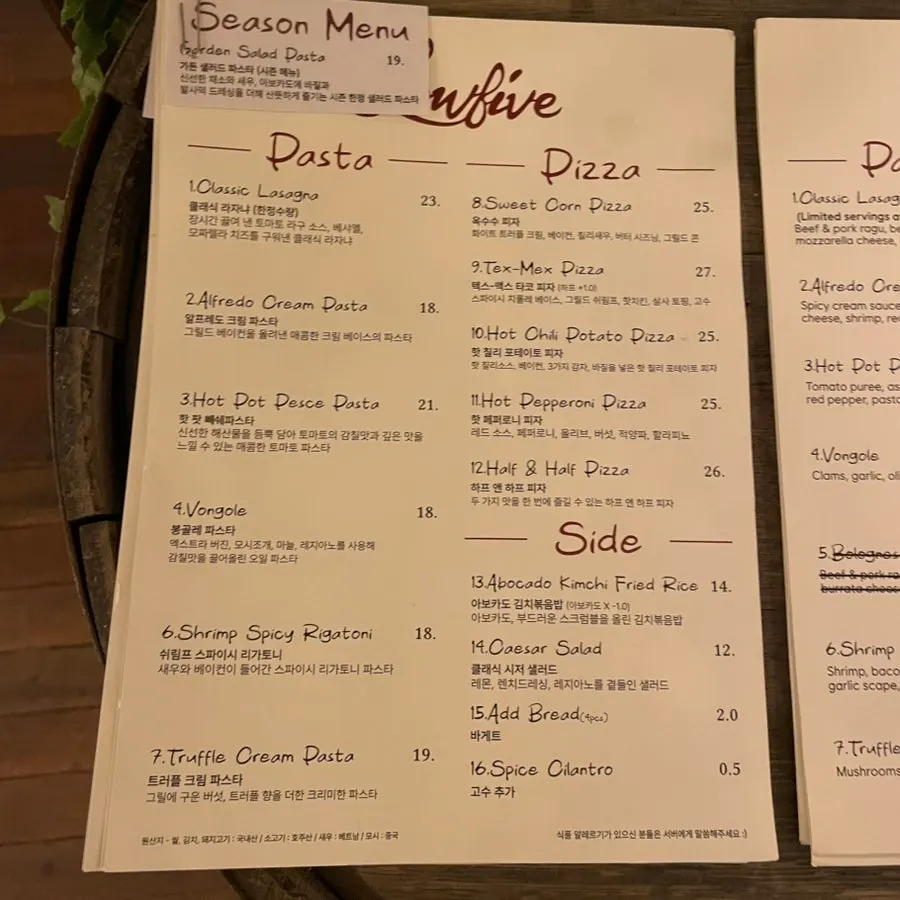 Season Menu
Garden Salad Pasta 19.
가든 샐러드 파스타 (시즌 메뉴)
신선한 채소와 새우, 아보카도에 바질과
발사믹 드레싱을 더해 산뜻하게 즐기는 시즌 한정 샐러드 파스타
Pasta
1.Classic Lasagna 23.
클래식 라자냐 (한정수량)
장시간 끓여 낸 토마토 라구 소스, 베샤멜,
모짜렐라 치즈를 구워낸 클래식 라자냐
2.Alfredo Cream Pasta 18.
알프레도 크림 파스타
그릴드 베이컨을 올려낸 매콤한 크림 베이스의 파스타
3.Hot Pot Pesce Pasta 21.
핫 팟 뻬쉐파스타
신선한 해산물을 듬뿍 담아 토마토의 감칠맛과 깊은 맛을
느낄 수 있는 매콤한 토마토 파스타
4.Vongole 18.
봉골레 파스타
엑스트라 버진, 모시조개, 마늘, 레지아노를 사용해
감칠맛을 끌어올린 오일 파스타
6.Shrimp Spicy Rigatoni 18.
쉬림프 스파이시 리가토니
새우와 베이컨이 들어간 스파이시 리가토니 파스타
7.Truffle Cream Pasta 19.
트러플 크림 파스타
그릴에 구운 버섯, 트러플 향을 더한 크리미한 파스타
Pizza
8.Sweet Corn Pizza 25.
옥수수 피자
화이트 트러플 크림, 베이컨, 칠리새우, 버터 시즈닝, 그릴드 콘
9.Tex-Mex Pizza 27.
텍스-맥스 타코 피자 (하프 +1.0)
스파이시 치폴레 베이스, 그릴드 쉬림프, 핫치킨, 살사 토핑, 고수
10.Hot Chili Potato Pizza 25.
핫 칠리 포테이토 피자
핫 칠리소스, 베이컨, 3가지 감자, 바질을 넣은 핫 칠리 포테이토 피자
11.Hot Pepperoni Pizza 25.
핫 페퍼로니 피자
레드 소스, 페퍼로니, 올리브, 버섯, 적양파, 할라피뇨
12.Half & Half Pizza 26.
하프 앤 하프 피자
두 가지 맛을 한 번에 즐길 수 있는 하프 앤 하프 피자
Side
13.Abocado Kimchi Fried Rice 14.
아보카도 김치볶음밥 (아보카도 X -1.0)
아보카도, 부드러운 스크럼블을 올린 김치볶음밥
14.Caesar Salad 12.
클래식 시저 샐러드
레몬, 렌치드레싱, 레지아노를 곁들인 샐러드
15.Add Bread(4pcs) 2.0
바게트
16.Spice Cilantro 0.5
고수 추가
원산지 - 쌀, 김치, 돼지고기 : 국내산 / 소고기 : 호주산 / 새우 : 베트남 / 모시 : 중국
식품 알레르기가 있으신 분들은 서버에게 말씀해주세요 :)
1.Classic Lasag
(Limited servings a
Beef & pork ragu, be
mozzarella cheese,
2.Alfredo Cre
Spicy cream sauce
cheese, shrimp, re
3.Hot Pot P
Tomato puree, as
red pepper, pasta
4.Vongole
Clams, garlic, oli
5.Bolognes
Beef & pork ra
burrata chees
6.Shrimp
Shrimp, baco
garlic scape,
7.Truffle
Mushrooms